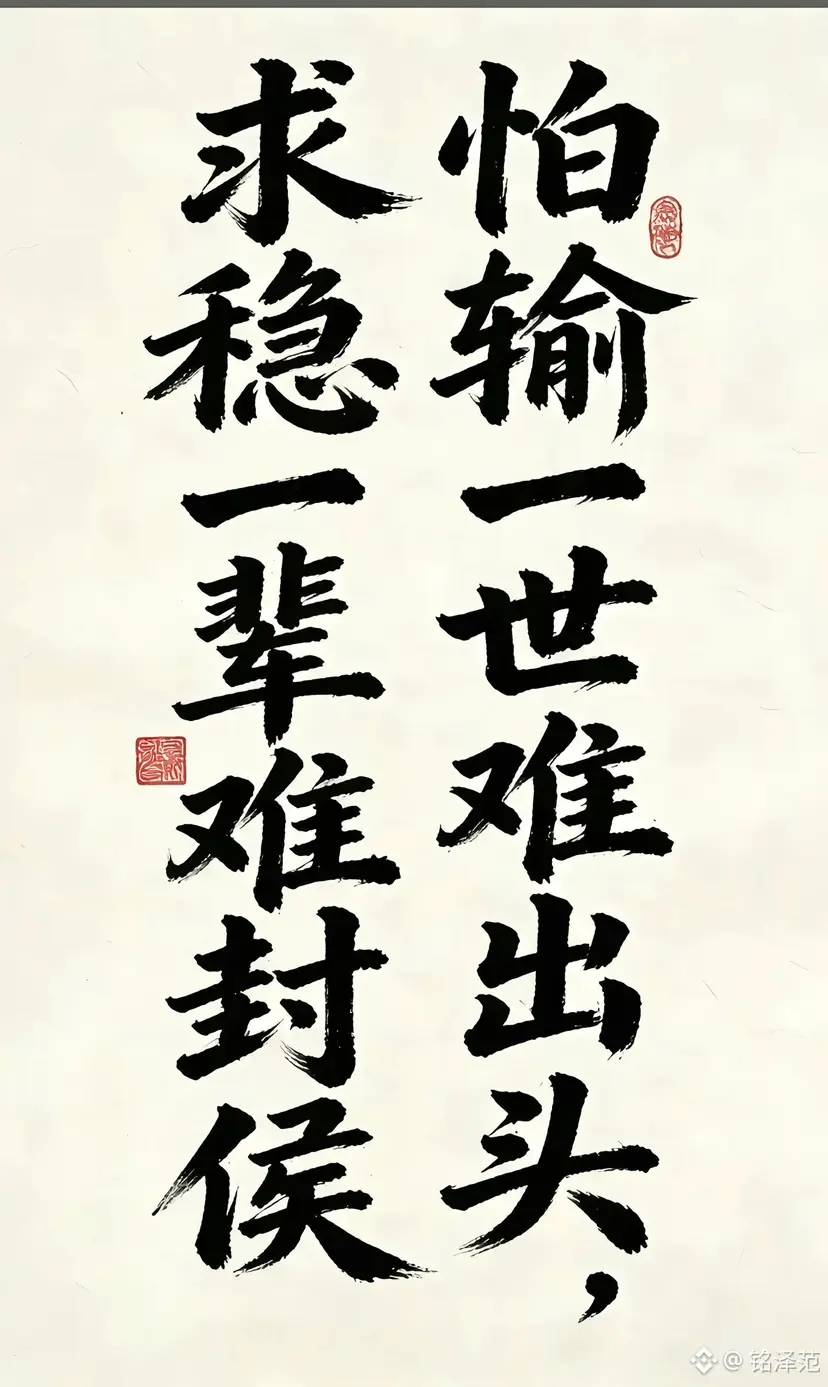 怕输一世难出头，
求稳一辈难封侯
@铭泽范